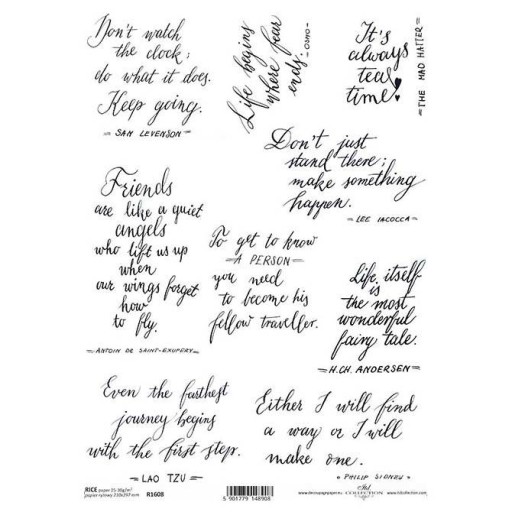 Don't watch
the clock;
do what it does.
Keep going.
SAM LEVENSON
Life begins
where fear
ends.
OSHO
It's
always
tea
time!
THE MAD HATTER
Don't just
stand there;
make something
happen.
LEE IACOCCA
Friends
are like a quiet
angels
who lift us up
when
our wings forget
how
to fly.
ANTOIN DE SAINT-EXUPERY
To get to know
A PERSON
you need
to become his
fellow traveller.
Life itself
is
the most
wonderful
fairy tale.
H.CH. ANDERSEN
Even the farthest
journey begins
with the first step.
LAO TZU
Either I will find
a way or I will
make one.
PHILIP SIDNEY
RICE paper 25-30g/m²
papier ryżowy 210x297 mm
R1608
5 901779 548908
www.decoupagepapers.eu
ITD
COLLECTION
www.itdcollection.com